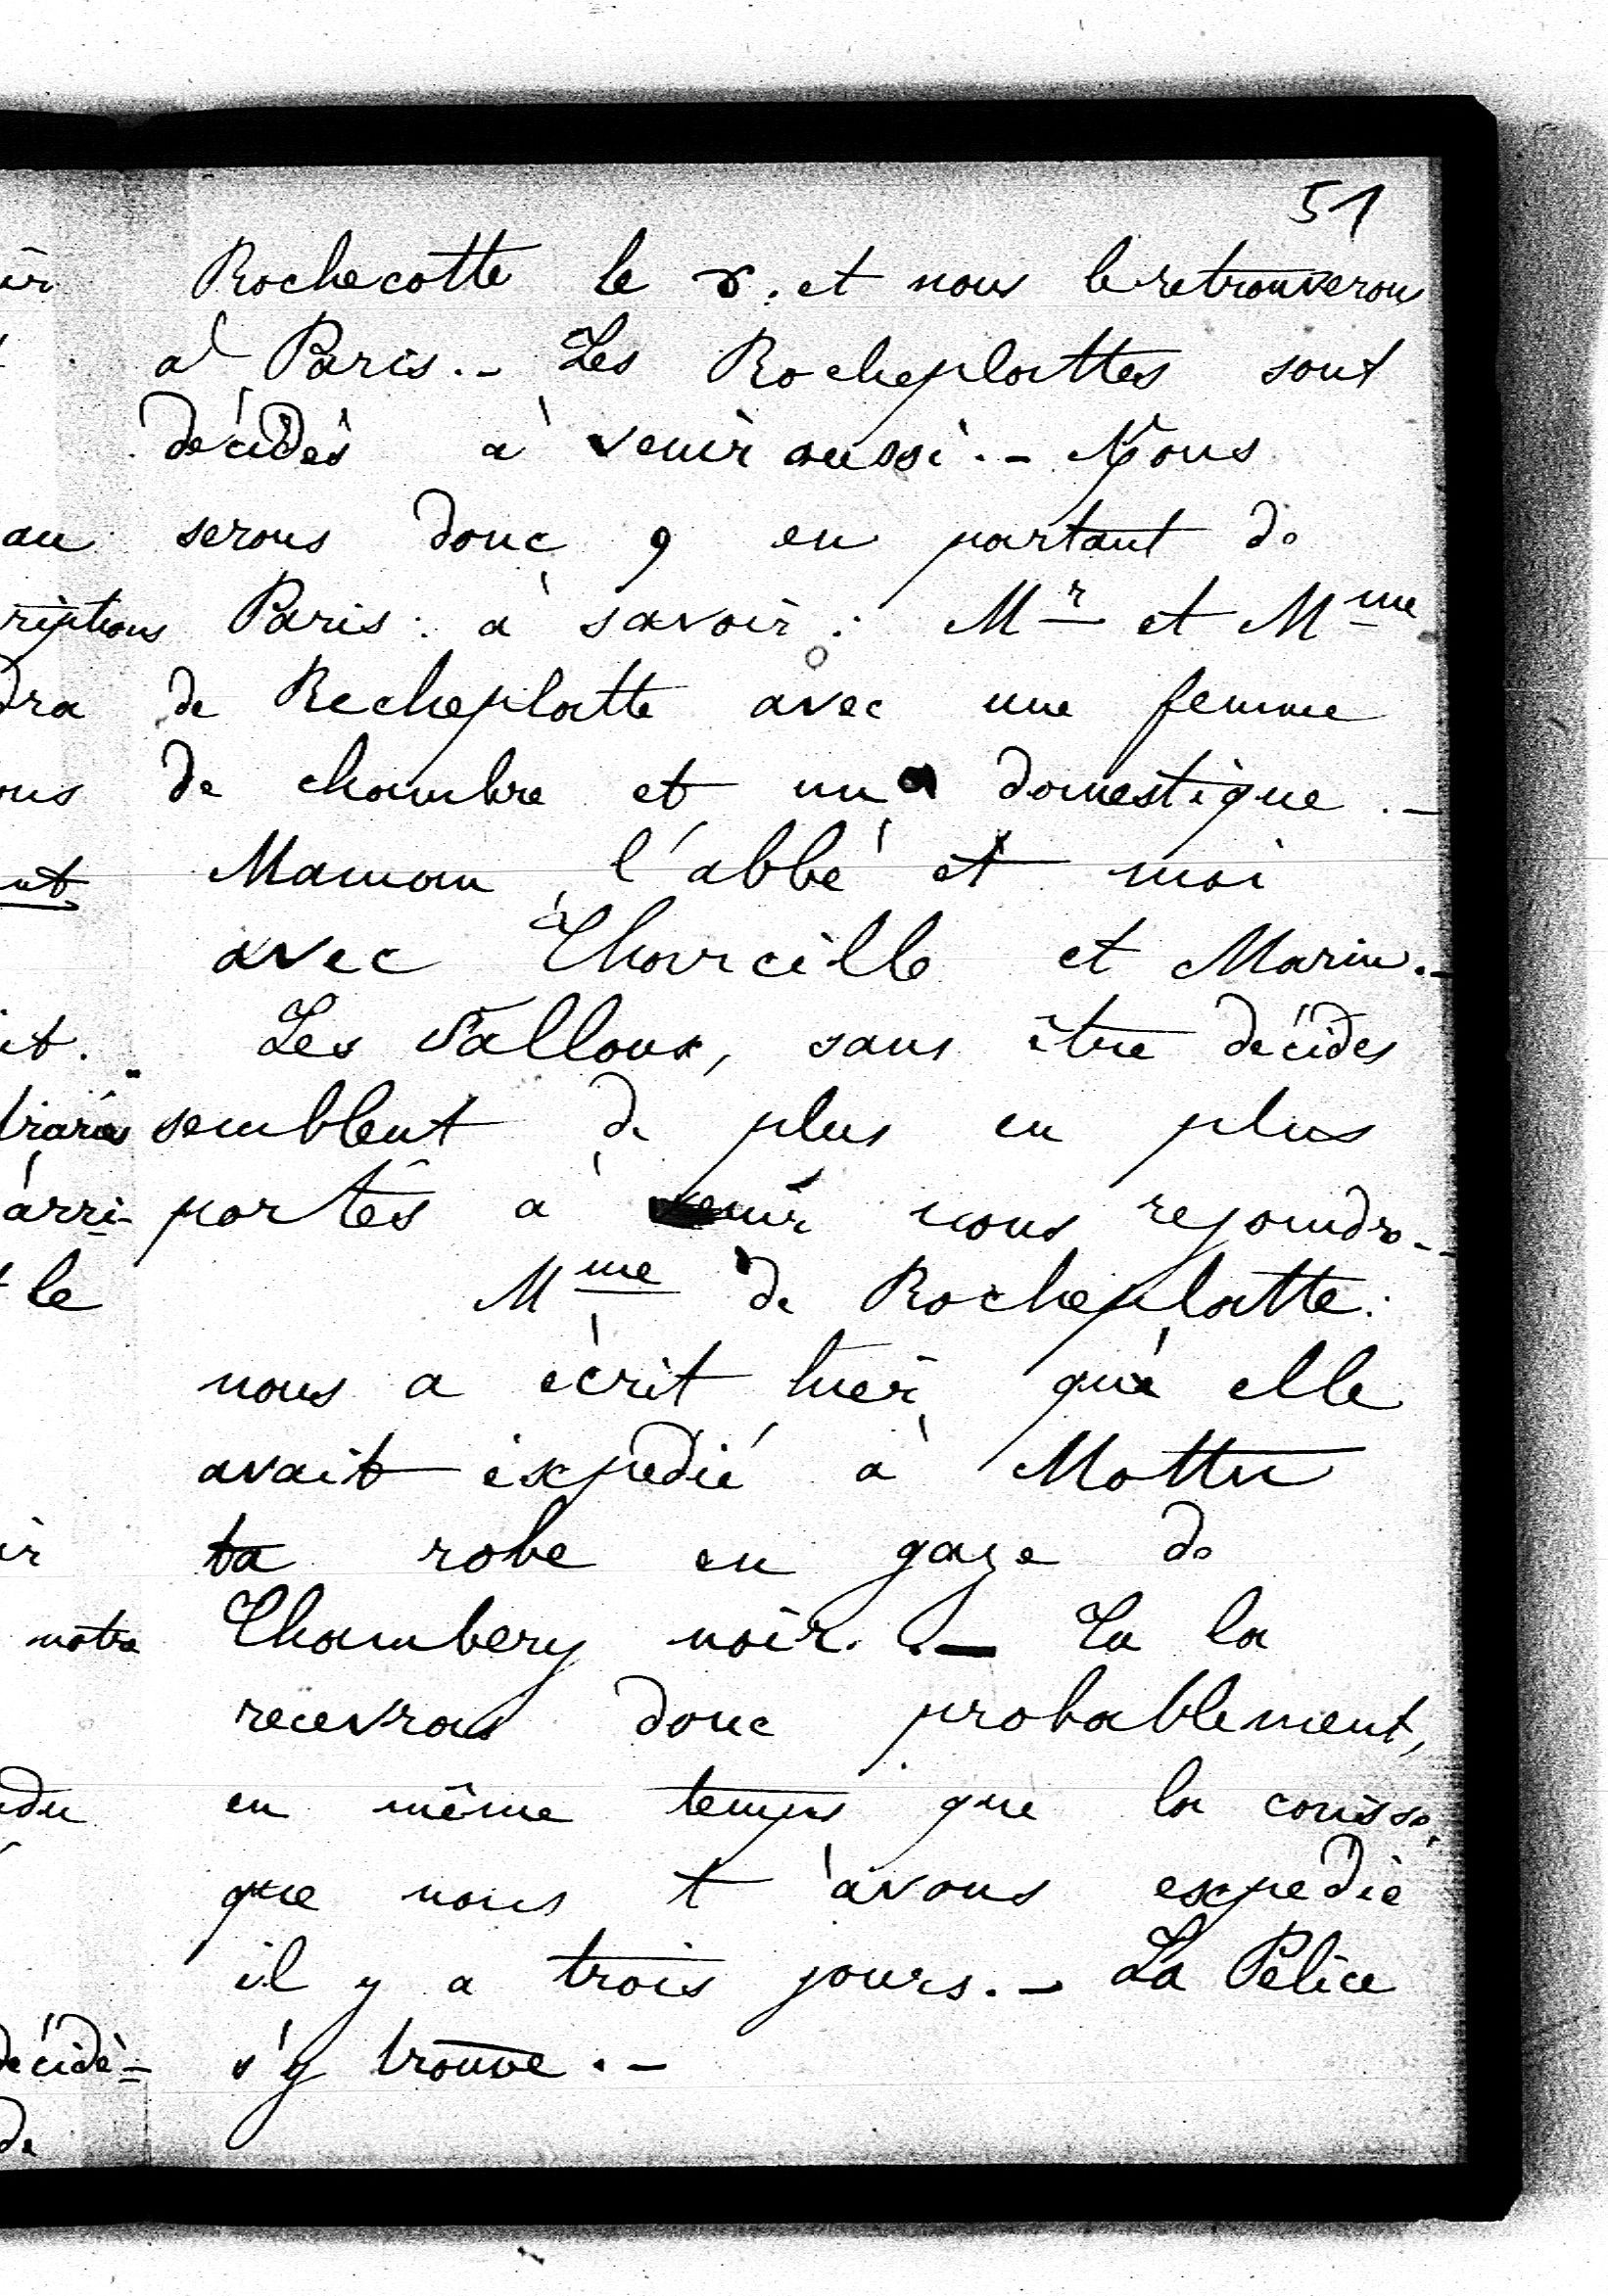 51
Rochecotte le 8. et nous le retrouverons
à Paris. - Les Rocheplattes sont
décidés à venir aussi. - Nous
serons donc 9 en partant de
Paris : à savoir : Mr et Mme
de Rocheplatte avec une femme
de chambre et un domestique. -
Maman, l'abbé et moi
avec Thourcille et Marin. -
Les Falloux, sans être décidés
semblent de plus en plus
portés à venir nous rejoindre. -
Mme de Rocheplatte
nous a écrit hier qu'elle
avait expédié à Mottu
ta robe en gaze de
Chambery noir. - Tu la
recevras donc probablement,
en même temps que la caisse
que nous t'avons expédié
il y a trois jours. - La Pelice
s'y trouve. -